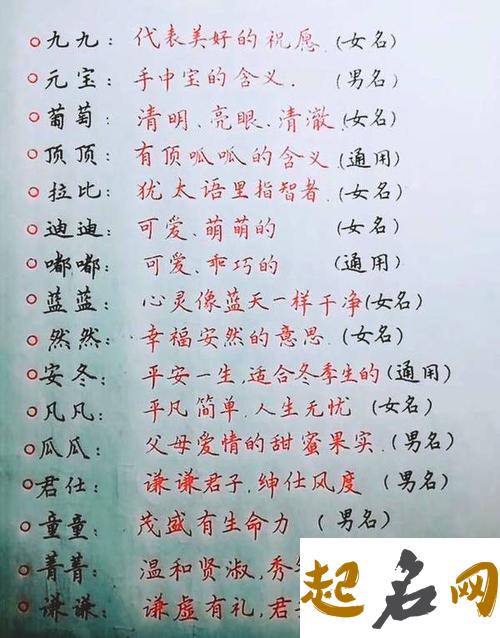 九九：代表美好的祝愿.(女名)
元宝：手中宝的含义.(男名)
葡萄：清明、亮眼、清澈.(女名)
顶顶：有顶呱呱的含义(通用)
拉比：犹太语里指智者.(女名)
迪迪：可爱、萌萌的(女名)
嘟嘟：可爱、乖巧的(通用)
蓝蓝：心灵像蓝天一样干净(女名)
然然：幸福安然的意思.(女名)
安冬：平安一生,适合冬季生的(通用)
凡凡：平凡简单.人生无忧(女名)
瓜瓜：父母爱情的甜蜜果实.(男名)
君仕：谦谦君子,绅仕风度(男名)
童童：茂盛有生命力(男名)
菁菁：温和贤淑,秀
谦谦：谦虚有礼,君
起名网